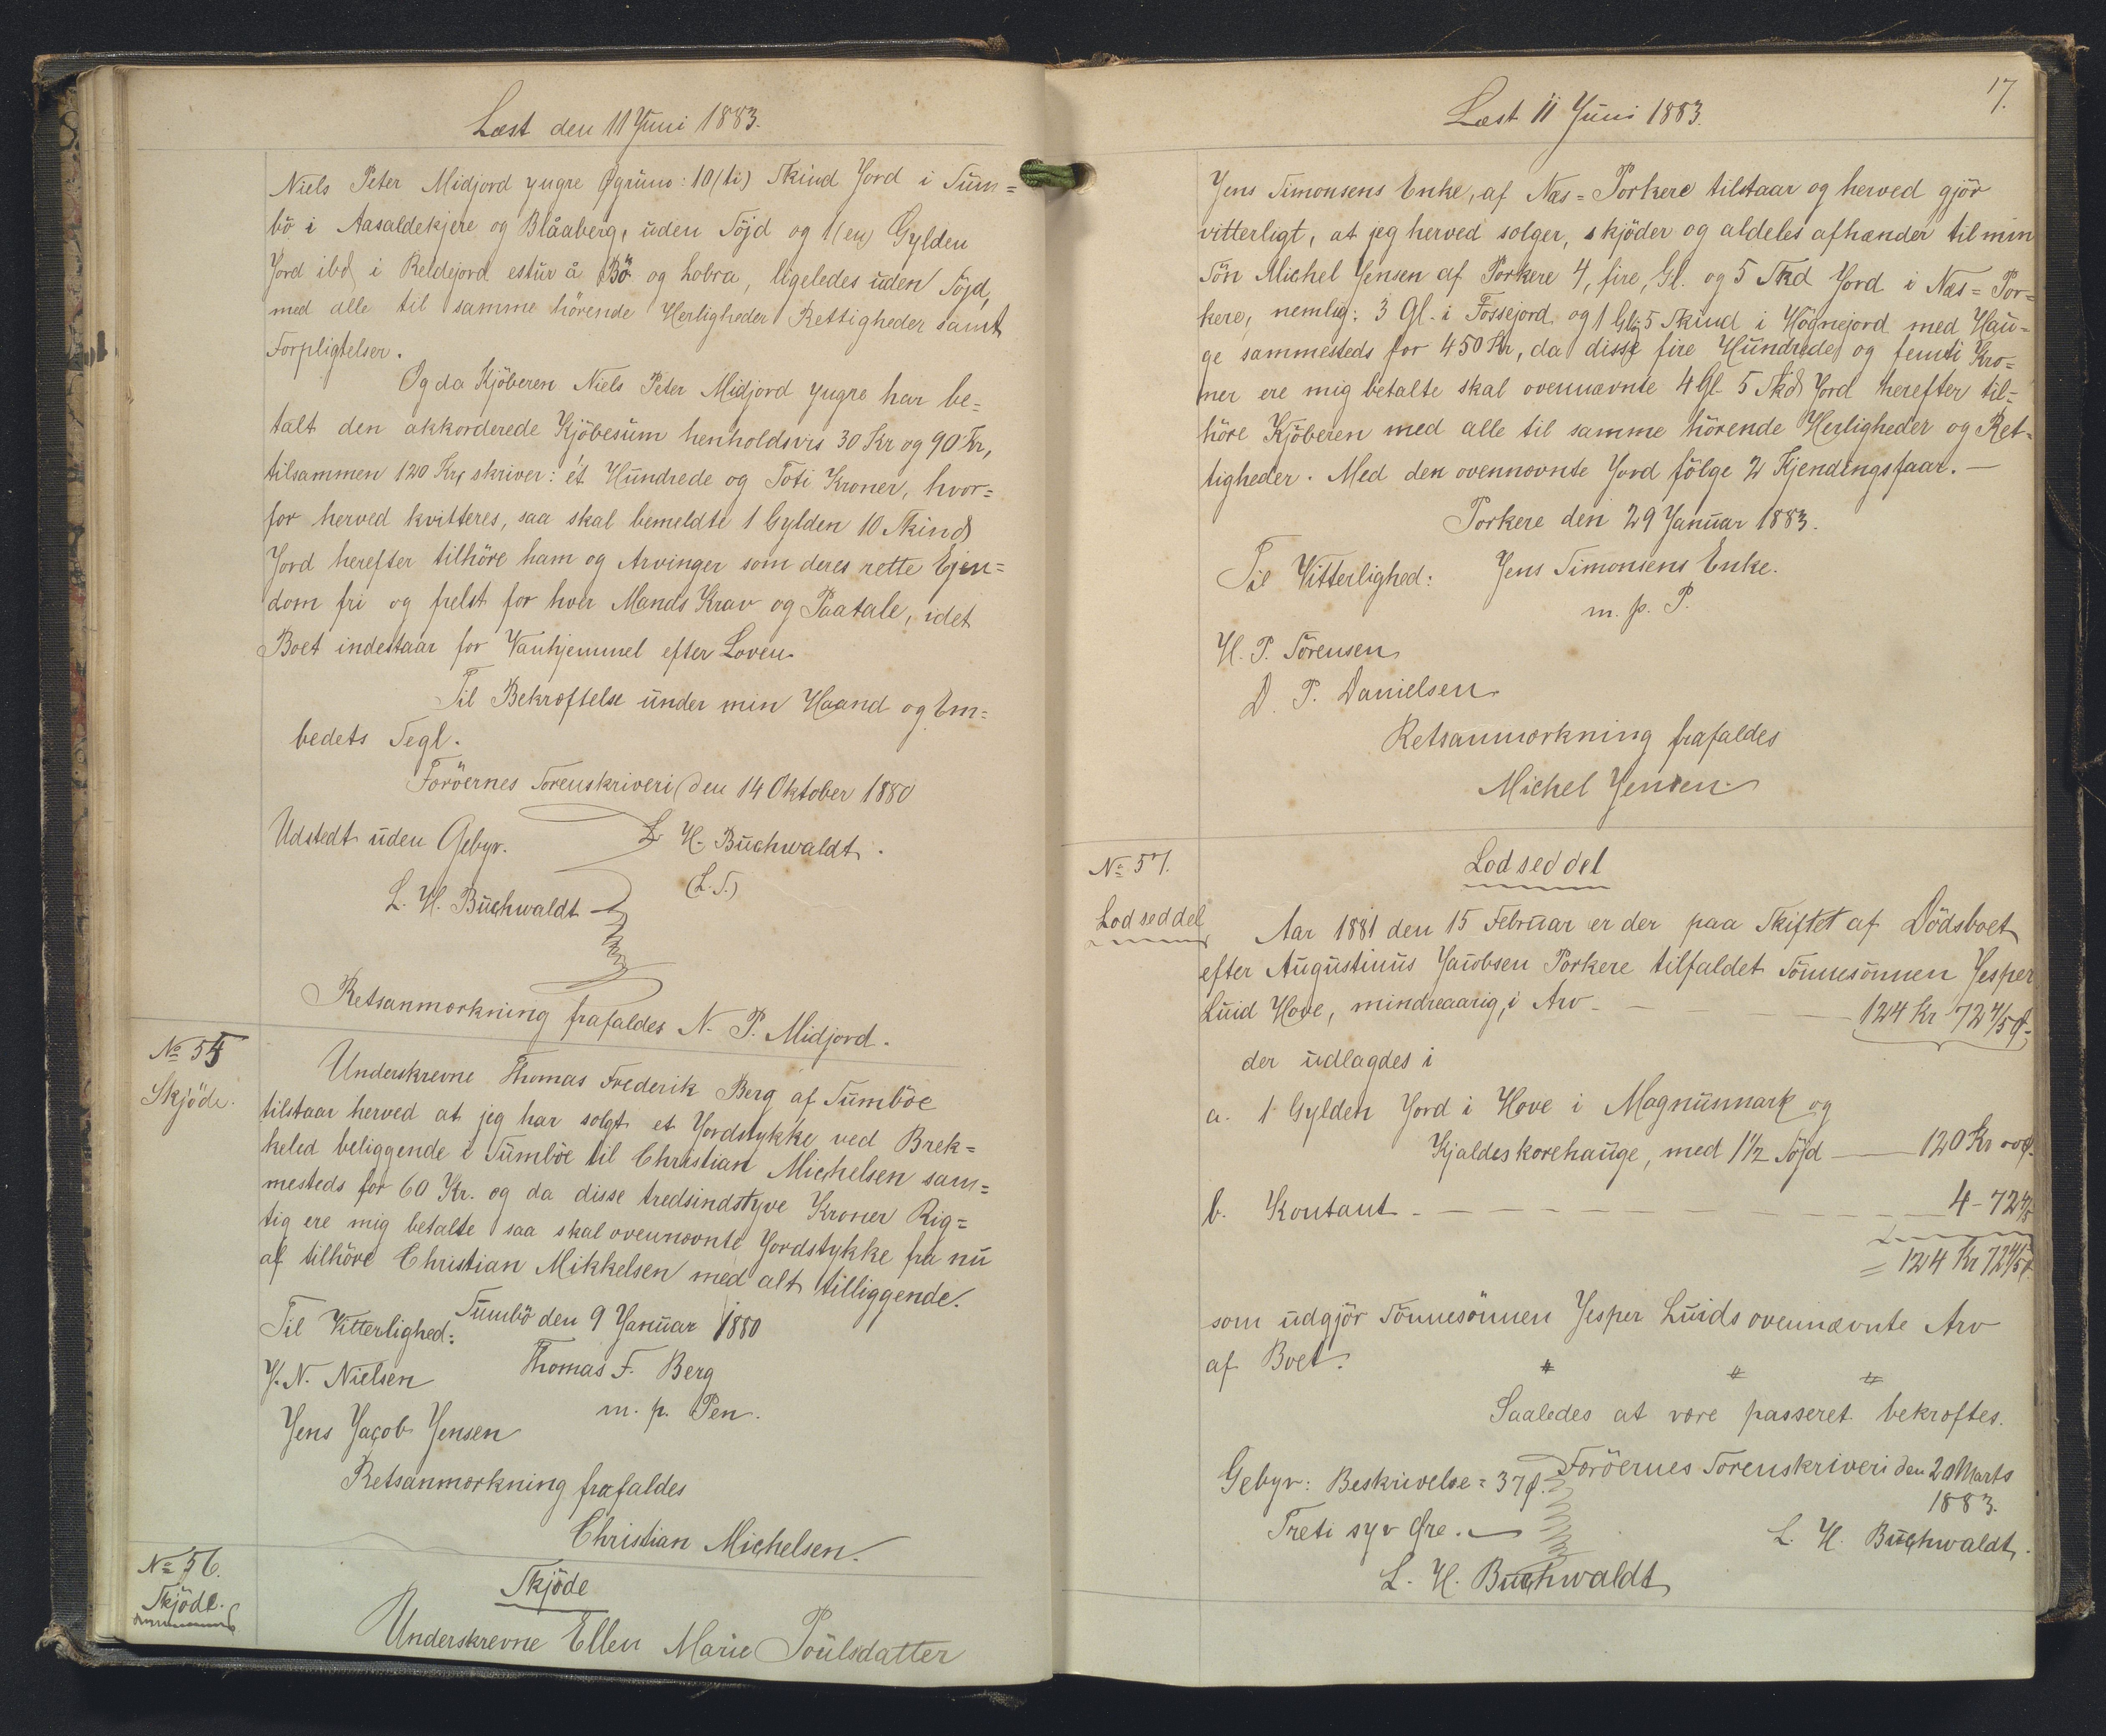 Læst den 11 Juni 1883.
Niels Peter Midjord yngre Øgrunø: 10 (ti) Skind Jord i Sum=
bö i Aasaldekjere og Blåaberg, uden Söjd og 1 (en) Gylden
Jord ibd i Reldejord estur å Bö og Lobra, ligeledes uden Söjd,
med alle til samme hörende Herligheder Rettigheder samt
Forpligtelser.
Og da Kjöberen Niels Peter Midjord yngre har be=
talt den akkorderede Kjöbesum henholdsvis 30 Kr og 90 Kr,
tilsammen 120 Kr, skriver: ét Hundrede og Toti Kroner, hvor=
for herved kvitteres, saa skal bemeldte 1 Gylden 10 Skind
Jord herefter tilhöre ham og Arvinger som deres rette Ejen=
dom fri og frelst for hver Mands Krav og Paatale, idet
Boet indestaar for Vanhjemmel efter Loven.
Til Bekræftelse under min Haand og Em=
bedets Segl.
Færöernes Sorenskriveri den 14 Oktober 1880
Udstedt uden Gebyr.
L. H. Buchwaldt.
L. H. Buchwaldt
(L. S.)
Retsanmærkning frafaldes N. P. Midjord.
No 55
Skjöde.
Underskrevne Thomas Frederik Berg af Sumböe
tilstaar herved at jeg har solgt et Jordstykke ved Brek=
keled beliggende i Sumböe til Christian Michelsen sam=
mesteds for 60 Kr. og da disse tredsindstyve Kroner Rig=
tig ere mig betalte saa skal ovennævnte Jordstykke fra nu
af tilhöre Christian Mikkelsen med alt tilliggende.
Sumbö den 9 Januar 1880
Til Vitterlighed:
J. N. Nielsen
Thomas F. Berg
m. p. Pen.
Jens Jacob Jensen
Retsanmærkning frafaldes
Christian Michelsen.
No 56.
Skjöde.
Skjöde
Underskrevne Ellen Marie Poulsdatter
17.
Læst 11 Juni 1883.
Jens Simonsens Enke, af Næs=Porkere tilstaar og herved gjör
vitterligt, at jeg herved sælger, skjöder og aldeles afhænder til min
Sön Michel Jensen af Porkere 4, fire, Gl. og 5 Skd Jord i Næs=Por=
kere, nemlig: 3 Gl. i Fossejord og 1 Gl. 5 Skind i Högnejord med Hau=
ge sammesteds for 450 Kr, da disse fire Hundrede og femti Kro=
ner ere mig betalte skal ovennævnte 4 Gl. 5 Skd Jord herefter til=
höre Kjöberen med alle til samme hörende Herligheder og Ret=
tigheder. Med den ovennævnte Jord fölge 2 Kjendingsfaar. —
Porkere den 29 Januar 1883.
Til Vitterlighed:
Jens Simonsens Enke.
m. p. P.
H. P. Sörensen
D. P. Danielsen
Retsanmærkning frafaldes
Michel Jensen.
No 57.
Lodseddel
Lodseddel
Aar 1881 den 15 Februar er der paa Skiftet af Dödsboet
efter Augustinus Jacobsen Porkere tilfaldet Sönnesönnen Jesper
Luid Hove, mindreaarig, i Arv — 124 Kr 72 4/5 Ø.
der udlagdes i
a. 1 Gylden Jord i Hove i Magnusmark og
Kjaldeskorehauge, med 1 1/2 Söjd — 120 Kr 00 Ø.
b. Kontant — 4 - 72 4/5
= 124 Kr 72 4/5 Ø.
som udgjör Sönnesönnen Jesper Luids ovennævnte Arv
af Boet.
Saaledes at være passeret bekræftes.
Færöernes Sorenskriveri den 20 Marts
1883.
Gebyr: Beskrivelse = 37 Ø.
Treti syv Øre. —
L. H. Buchwaldt.
L. H. Buchwaldt